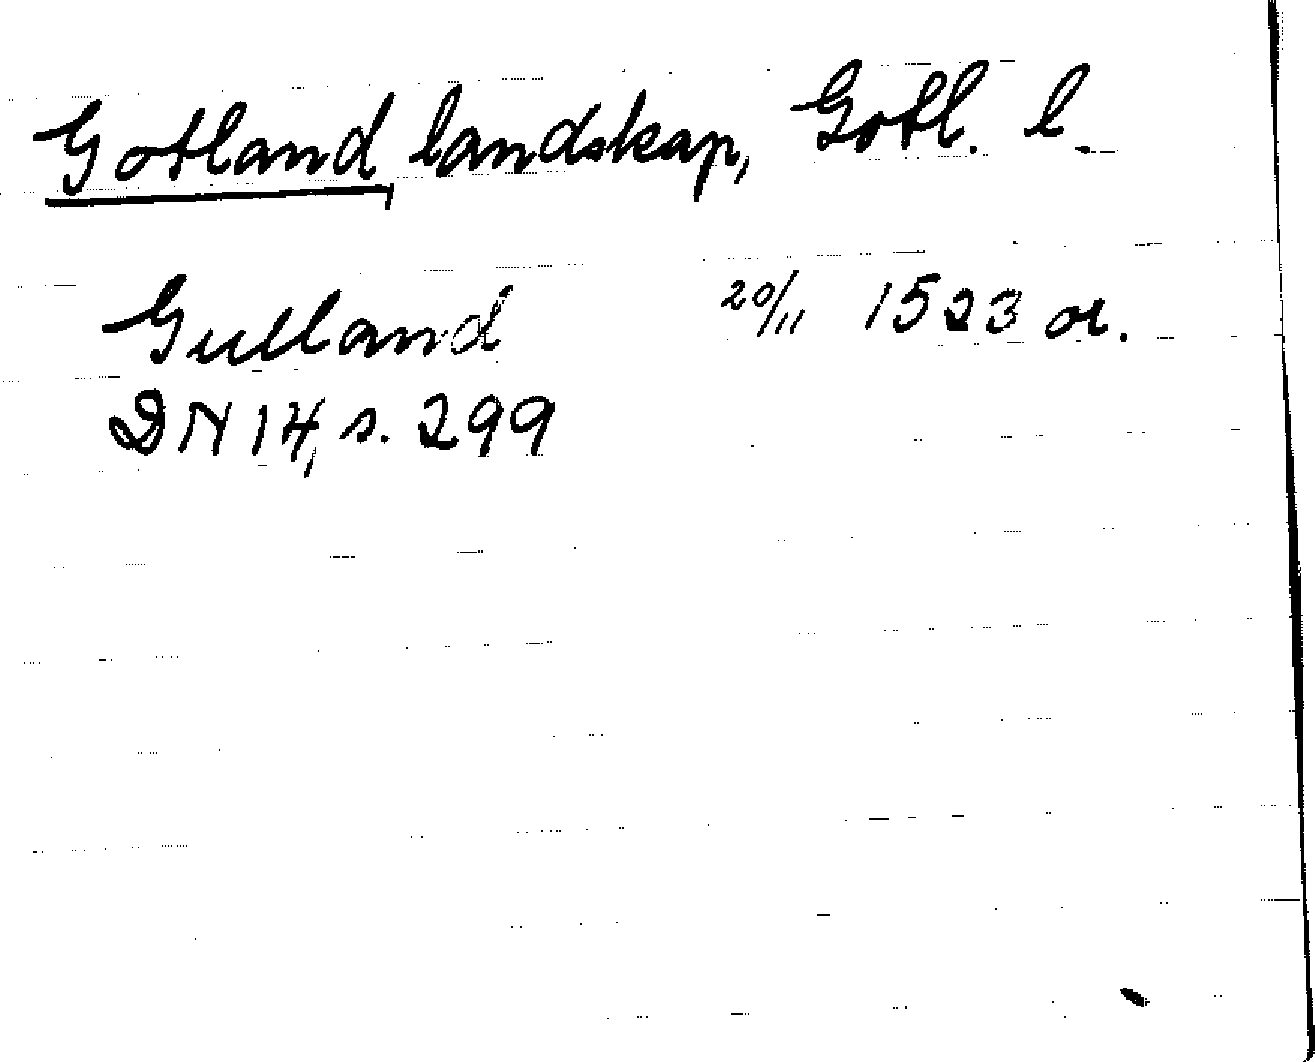 Gotland, landskap, Gotl. l.
Gutland 20/11 1523 or.
DN 14, s. 299